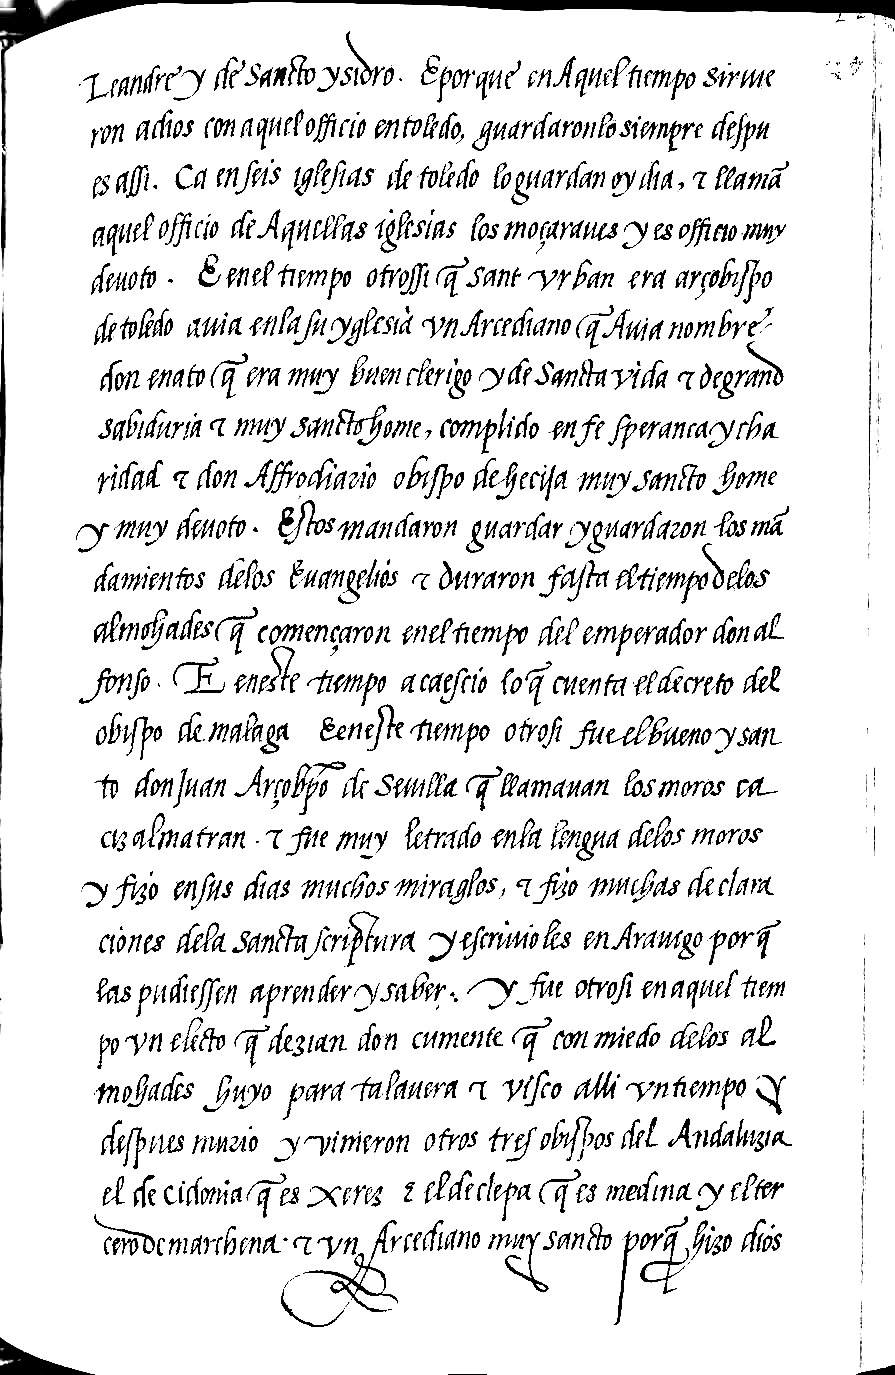 Leandre y de Sancto ysidro. E porque en Aquel tiempo sirvie
ron adios con aquel officio en toledo, guardaronlo siempre despu
es assi. Ca en seis iglesias de toledo lo guardan oy dia, τ llamã
aquel officio de Aquellas iglesias los moçaraues y es officio muy
deuoto. E enel tiempo otrossi q̃ Sant Vrban era arçobispo
de toledo auia enla su yglesia vn Arcediano q̃ Auia nombre
don enato q̃ era muy buen clerigo y de Sancta vida τ de grand
sabiduria τ muy sancto home, complido en fe sperança y cha
ridad τ don Affrodiario obispo de hecija muy sancto home
y muy deuoto. Estos mandaron guardar y guardaron los mã
damientos delos Euangelios τ duraron fasta el tiempo delos
almohades q̃ començaron enel tiempo del emperador don al
fonso. E eneste tiempo acaescio lo q̃ cuenta el decreto del
obispo de malaga E eneste tiempo otrosi fue el bueno y san
to don Juan Arçobp̃o de Sevilla q̃ llamauan los moros ca
ciz almatran. τ fue muy letrado enla lengua delos moros
y fizo en sus dias muchos miraglos, τ fizo muchas declara
ciones dela sancta scriptura y escriuioles en Arauigo porq̃
las pudiessen aprender y saber. Y fue otrosi en aquel tiem
po vn electo q̃ dezian don cumente q̃ con miedo delos al
mohades huyo para talauera τ visco alli vn tiempo y
despues murio y vinieron otros tres obispos del Andaluzia
el de cidonia q̃ es xerez τ el de clepa q̃ es medina y el ter
cero de marchena. τ vn Arcediano muy sancto porq̃ hizo dios